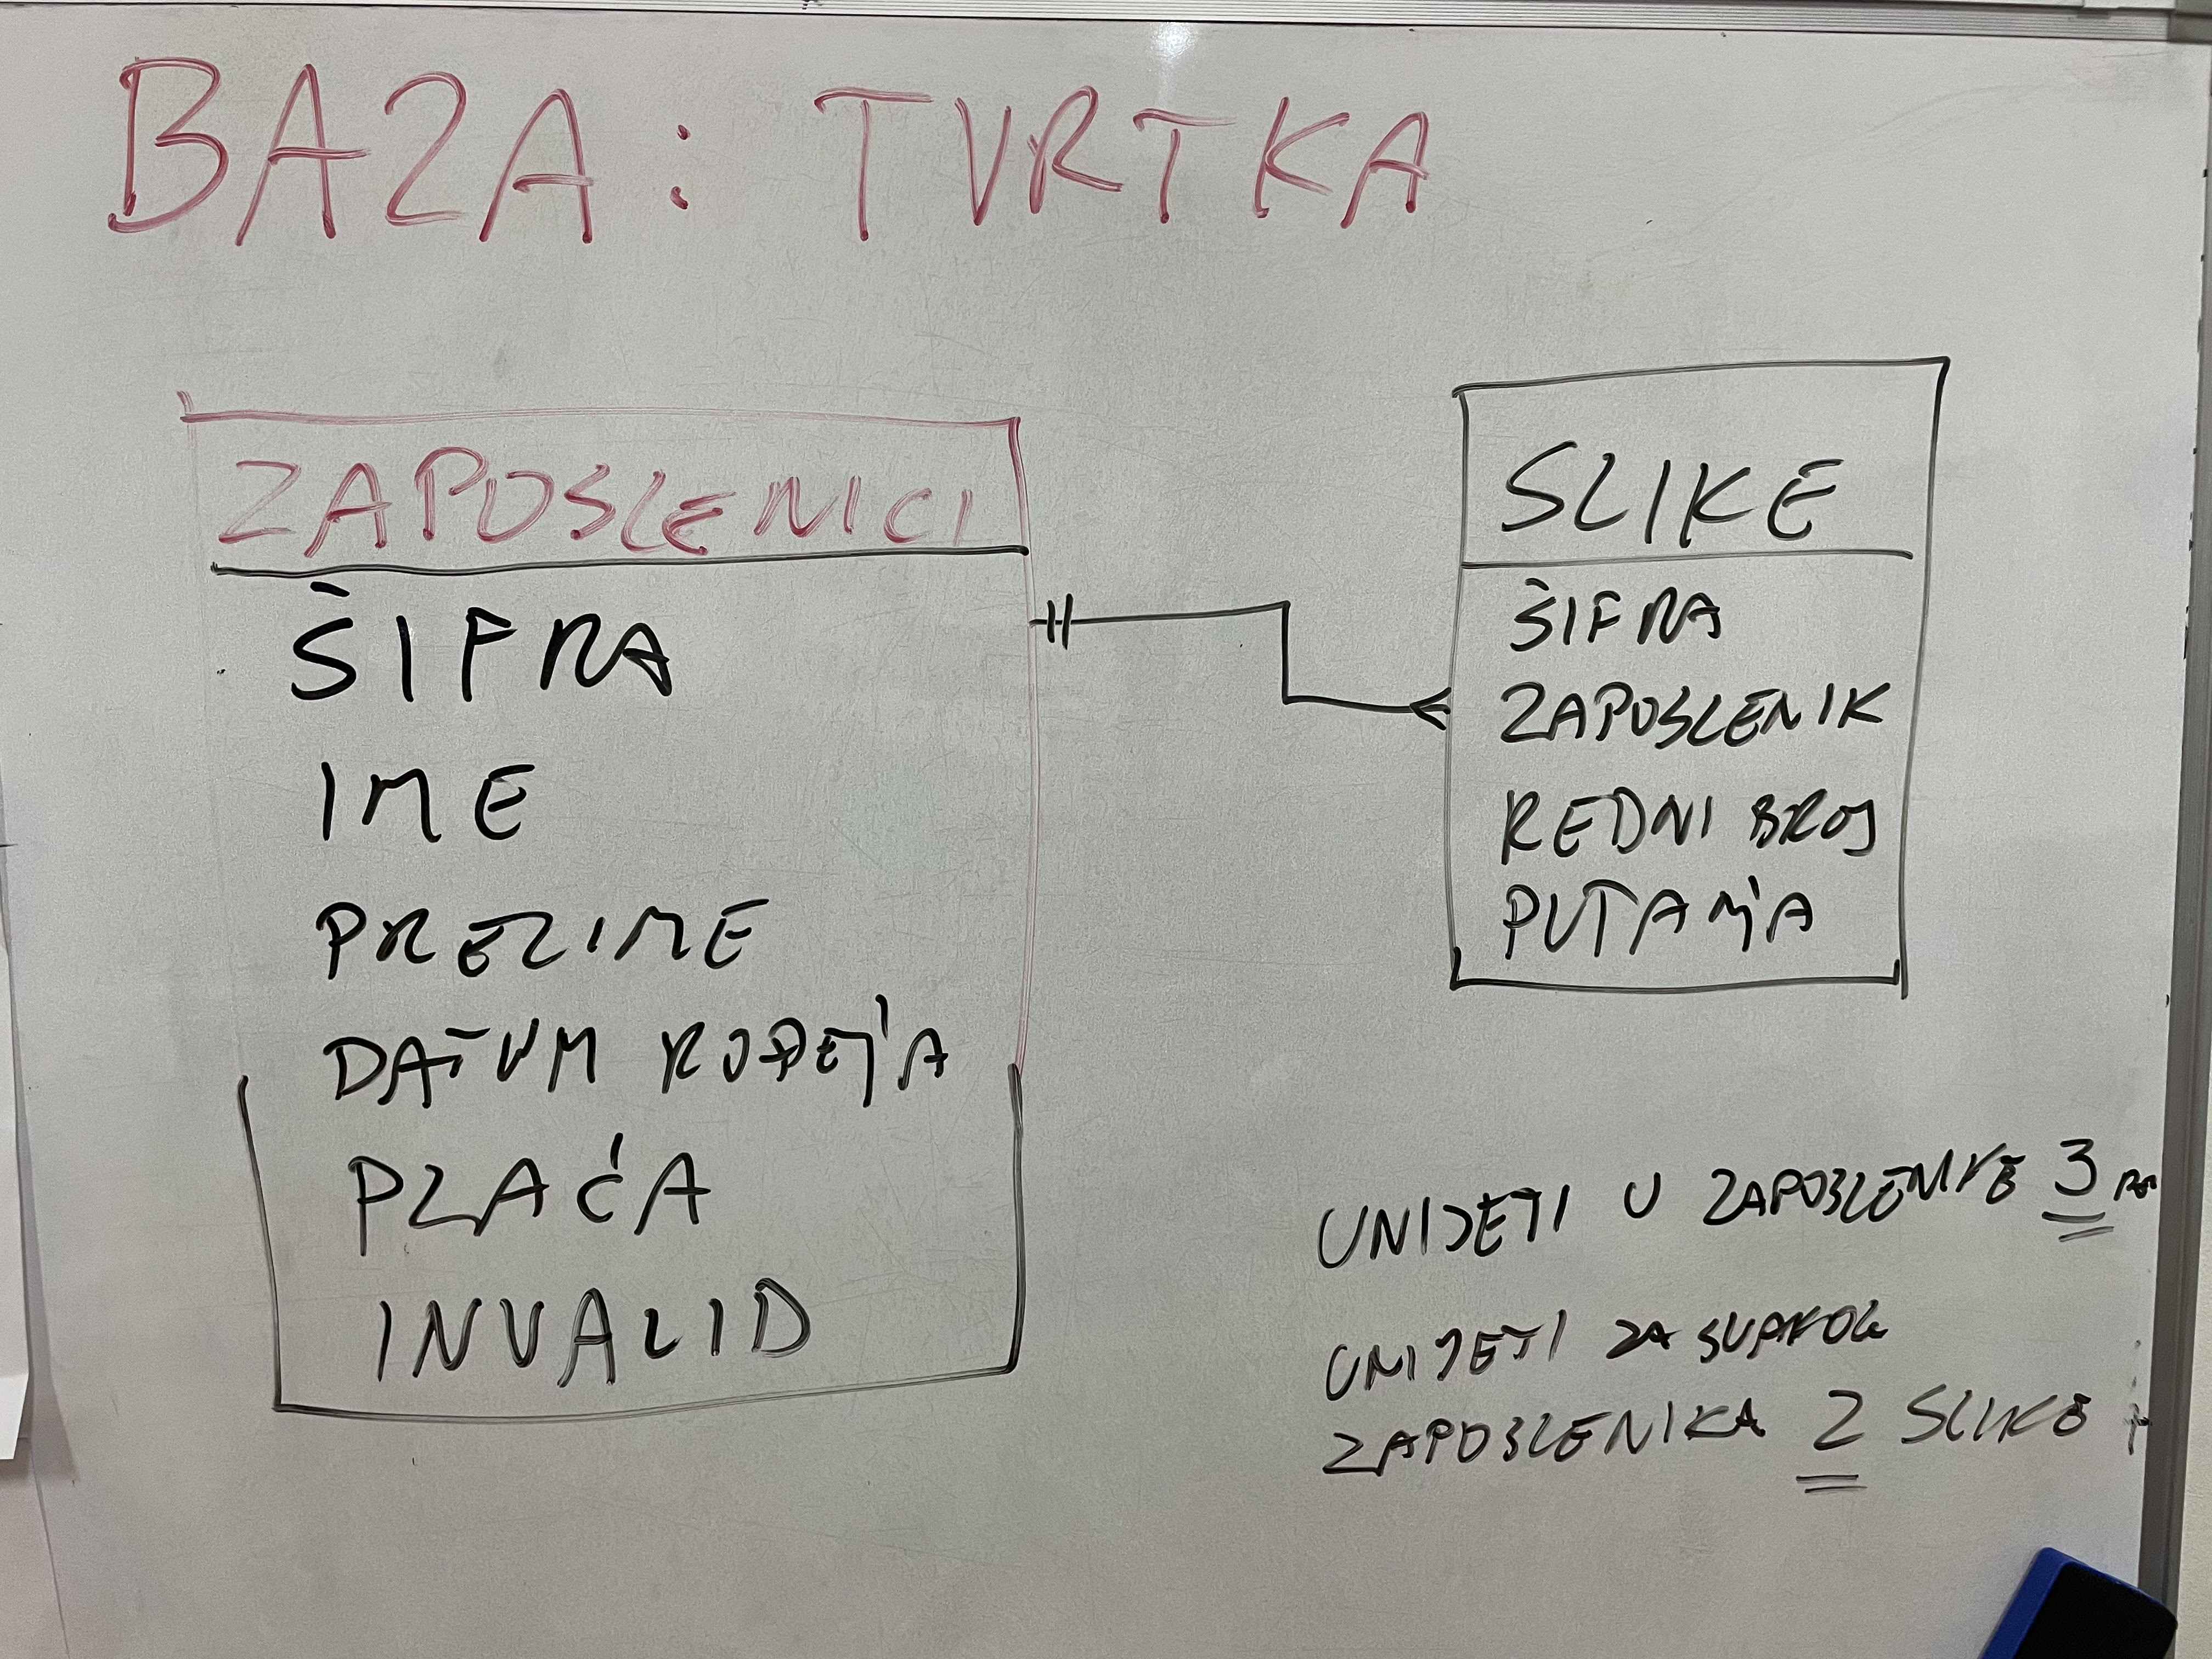 BAZA: TVRTKA
ZAPOSLENICI
ŠIFRA
IME
PREZIME
DATUM ROĐENJA
PLAĆA
INVALID
SLIKE
ŠIFRA
ZAPOSLENIK
REDNI BROJ
PUTANJA
UNIJETI U ZAPOSLENIKE 3
UNIJETI ZA SVAKOG
ZAPOSLENIKA 2 SLIKE